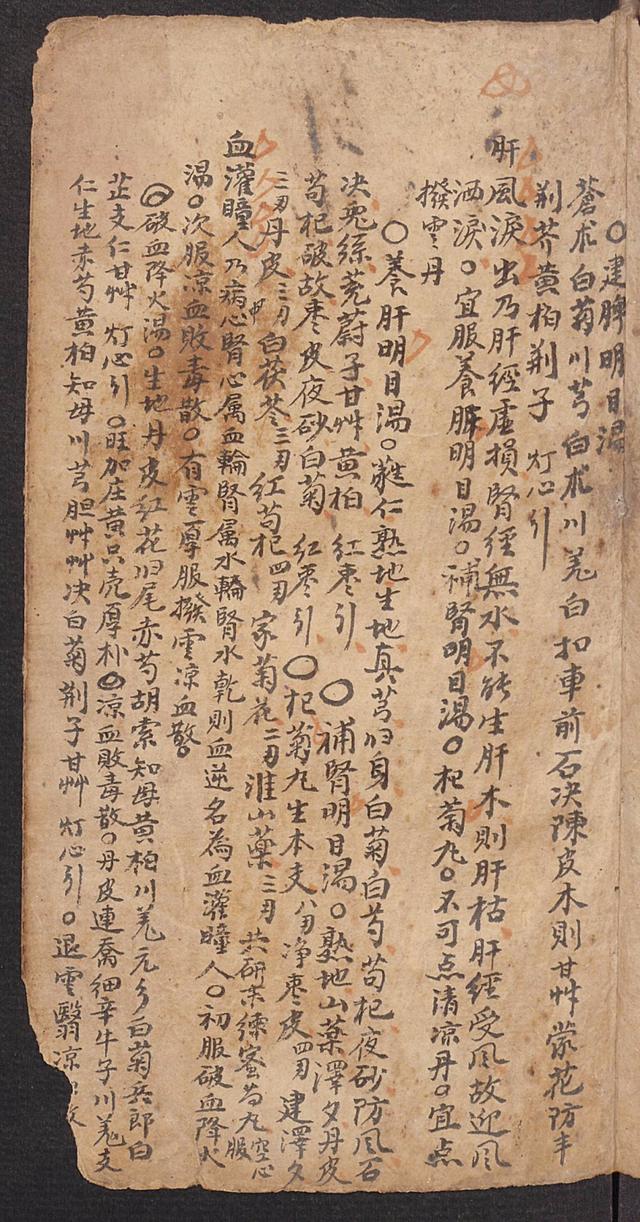 〇建脾明目湯
蒼朮白菊川芎白朮川羌白扣車前石决陳皮木則甘艸蒙花防丰
荆芥黄柏荆子 灯心引
肝風淚出乃肝經虛損腎經無水不能生肝木則肝枯肝經受風故迎風
洒淚〇宜服養脾明目湯〇補腎明目湯〇杞菊丸〇不可点清凉丹〇宜点
撥雲丹
〇養肝明目湯〇蕤仁熟地生地真芎归身白菊白芍苟杞夜砂防風石
决兎絲茺蔚子甘艸黄柏 紅枣引 〇補腎明目湯〇熟地山藥澤夕丹皮
苟杞破故枣皮夜砂白菊 紅枣引 〇杞菊丸生本支八刄净枣皮四刄建澤夕
三刄丹皮三刄白茯苓三刄紅苟杞四刄 家菊花二刄淮山藥三刄 共研末練蜜為丸空心服
血灌瞳人乃病心腎心属血輪腎属水輪腎水乾則血逆名為血灌瞳人〇初服破血降火
湯〇次服凉血敗毒散〇有雲厚服撥雲凉血散〇
〇破血降火湯〇生地丹皮紅花归尾赤芍胡索知母黄柏川羌元参白菊兵郎白
芷支仁甘艸 灯心引〇旺加庄黄只壳厚朴〇凉血敗毒散〇丹皮連喬細辛牛子川羌支
仁生地赤芍黄柏知母川芎胆艸艸决白菊荆子甘艸 灯心引〇退雲翳凉